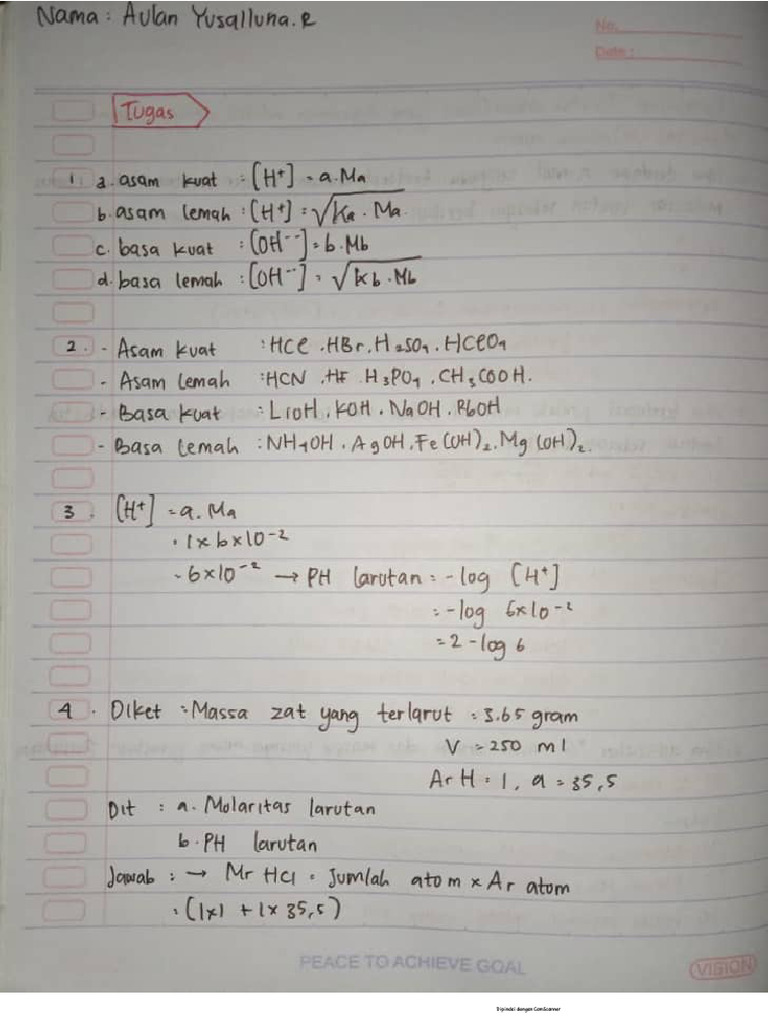 Nama : Aulan Yusalluna.R
No.
Date :
Tugas
1 a. asam kuat : [H⁺] = a.Ma
b. asam lemah : [H⁺] = √Ka . Ma.
c. basa kuat : [OH⁻⁻] = b.Mb
d. basa lemah : [OH⁻] = √Kb . Mb
2. - Asam kuat : HCl . HBr . H₂SO₄ . HClO₄
- Asam lemah : HCN . HF . H₃PO₄ . CH₃COOH.
- Basa kuat : LiOH . KOH . NaOH . RbOH
- Basa lemah : NH₄OH . AgOH . Fe(OH)₂ . Mg(OH)₂.
3. [H⁺] = a. Ma
= 1 x 6 x 10⁻²
= 6 x 10⁻² → PH larutan = -log [H⁺]
= -log 6x10⁻²
= 2 - log 6
4. Diket : Massa zat yang terlarut = 3.65 gram
V = 250 ml
Ar H = 1, Cl = 35,5
Dit : a. Molaritas larutan
b. PH larutan
Jawab : → Mr HCl = Jumlah atom x Ar atom
= (1x1 + 1x 35,5)
PEACE TO ACHIEVE GOAL
VISION
Dipindai dengan CamScanner